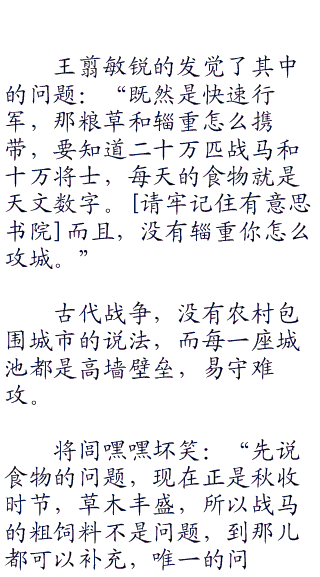 王翦敏锐的发觉了其中
的问题：“既然是快速行
军，那粮草和辎重怎么携
带，要知道二十万匹战马和
十万将士，每天的食物就是
天文数字。[请牢记住有意思
书院]而且，没有辎重你怎么
攻城。”
古代战争，没有农村包
围城市的说法，而每一座城
池都是高墙壁垒，易守难
攻。
将闾嘿嘿坏笑：“先说
食物的问题，现在正是秋收
时节，草木丰盛，所以战马
的粗饲料不是问题，到那儿
都可以补充，唯一的问